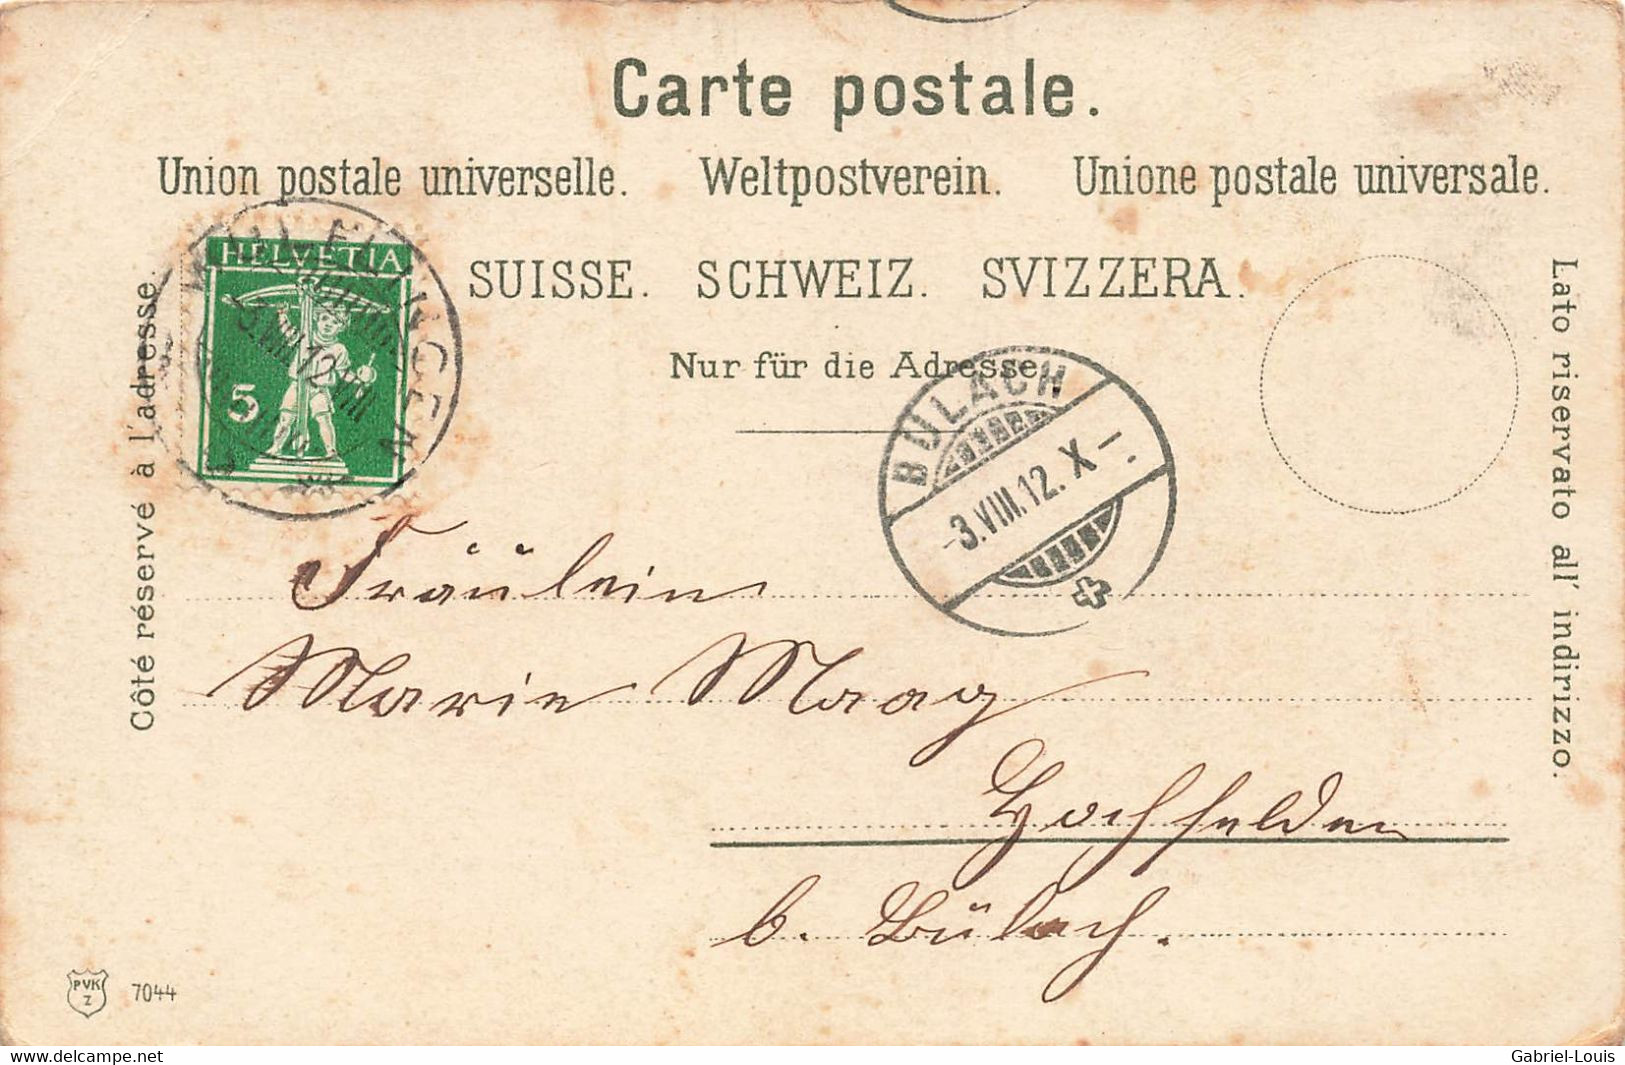 Carte postale.
Union postale universelle. Weltpostverein. Unione postale universale.
SUISSE. SCHWEIZ. SVIZZERA.
Nur für die Adresse.
Côté réservé à l'adresse.
Lato riservato all' indirizzo.
HELVETIA
5
BÜLACH
-3.VIII.12.X-
Fräulein
Marie Maag
Hochfelden
b. Bülach.
PVK
Z
7044
www.delcampe.net
Gabriel-Louis